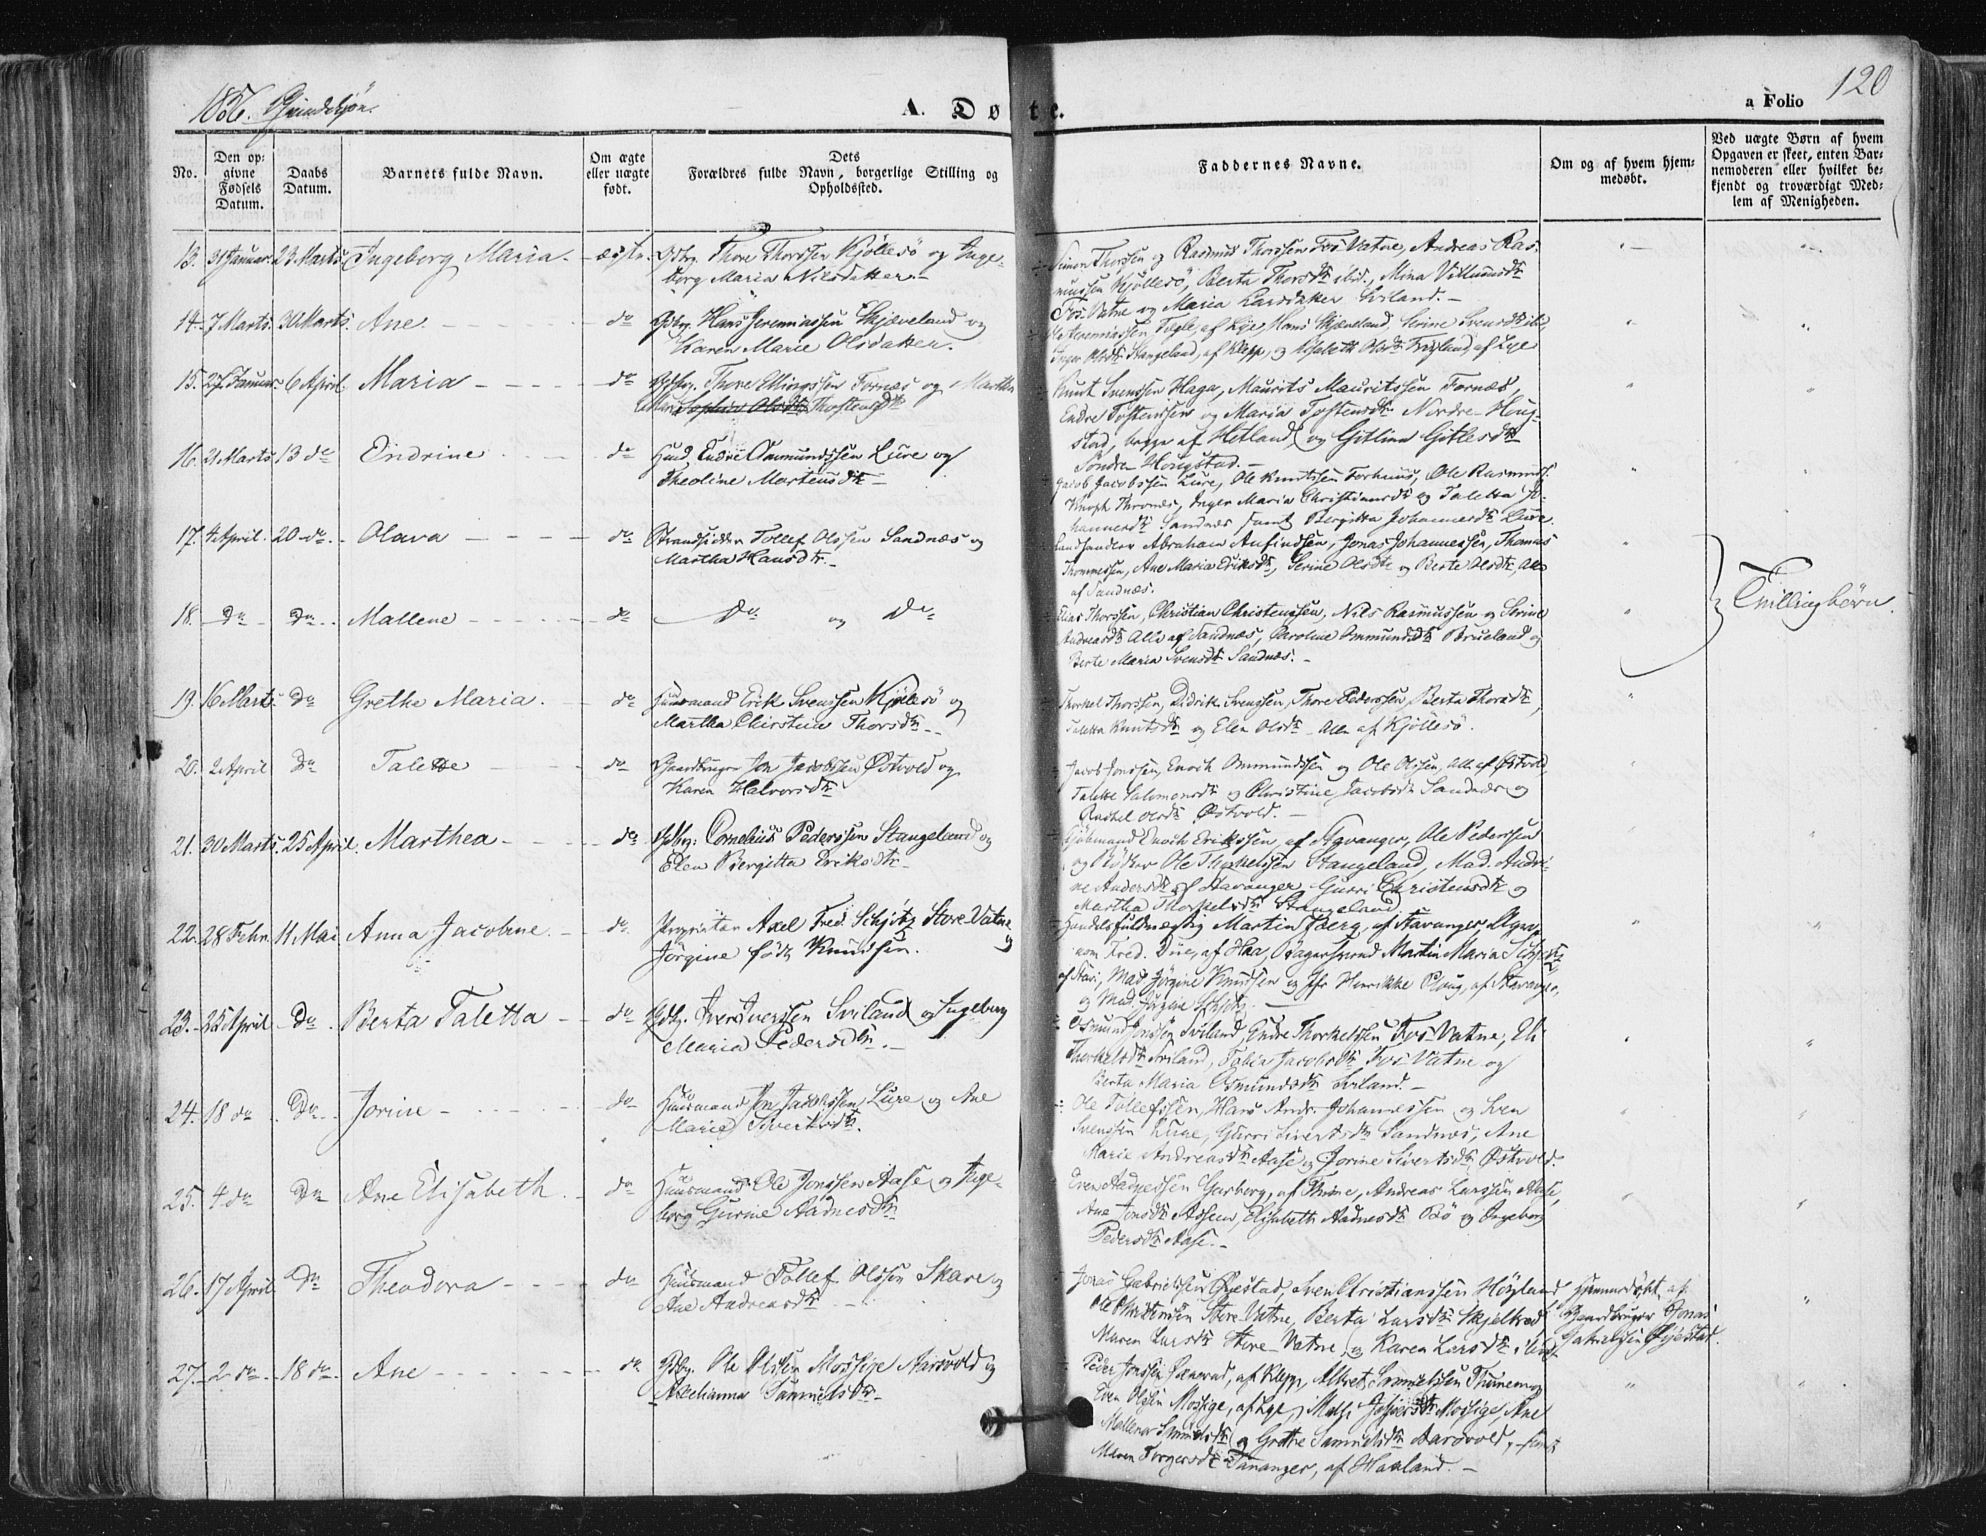 1856. Qvindekjøn.
A. Døbte.
a Folio 120
No.
Den opgivne Fødsels Datum.
Daabs Datum.
Barnets fulde Navn.
Om ægte eller uægte født.
Dets Forældres fulde Navn, borgerlige Stilling og Opholdssted.
Faddernes Navne.
Om og af hvem hjemmedøbt.
Ved uægte Børn af hvem Opgaven er skeet, enten Barnemoderen eller hvilket bekjendt og troværdigt Medlem af Menigheden.
13. 31 Januar. 23 Marts. Ingeborg Maria. - ægte. Gdbr. Thore Thorssen Kjøllesø og Inge-
borg Maria Nilsdatter. -
Simon Thorssen og Rasmus Thorssen Fos Vatne, Andreas Ras-
mussen Kjøllesø, Berta Thorsdtr ibid., Mina Villumsdtr
Fos Vatne og Maria Larsdatter Sviland. -
14. 7 Marts. 30 Marts. Ane. - do Gdbr. Hans Jeremiassen Skjæveland og
Karen Marie Olsdatter.
Jeremiassen Tegle, af Lye, Hans Skjæveland, Serine Svensdtr ibid,
Inger Olsdtr Stangeland, af Klepp, og Elisabeth Olsdtr Frøyland, af Lye
15. 27 Januar. 6 April. Maria - do Gdbr. Thore Ellingssen Fornæs og Martha
Sophie Olsdtr Thorstensdtr
Knut Svenssen Haga, Maurits Mauritssen Fornæs,
Endre Tostenssen og Maria Tostensdtr Nordre-Houg-
stad, begge af Hetland, og Gitlina Gitlesdtr
Søndre-Hougstad. -
16. 21 Marts 13 do Endrine - do Huusmd Endre Aamundssen Lure og
Theoline Mortensdtr -
Jacob Jacobssen Lure, Ole Knutssen Forhuus, Ole Rasmuss.
Thronæs, Inger Maria Christiansdtr og Taletta Jo-
hannesdtr Sandnæs samt Bergitta Johannesdtr Lure.
17. 4 April. 20 do. Olava - do Strandsidder Tollef Olssen Sandnæs og
Martha Hansdtr. -
Landhandler Abraham Anfindsen, Jonas Johannessen, Thomas
Thommessen, Ane Maria Eriksdtr, Serine Olsdtr og Berte Olsdtr, Alle
af Sandnæs.
18. Do Do. Mallene - do Do og Do
Elias Thorssen, Christian Christenssen, Nils Rasmussen og Serine
Andreasdtr Alle af Sandnæs, Caroline Ommundsdtr Brueland og
Berte Maria Svensdtr Sandnæs. -
Tvillingbørn.
19. 16 Marts. Do Grethe Maria. - do Huusmand Erik Svenssen Kjøllesø og
Martha Christine Thorsdtr. -
Thorkel Thorssen, Didrik Svenssen, Thore Pederssen, Berta Thorsdtr,
Taletta Knutsdtr og Elen Olsdtr Alle af Kjøllesø.
20. 2 April Do Talette - do Gaardbruger Jon Jacobssen Østvold og
Karen Halvorsdtr
Jacob Jonssen, Enoch Ommundssen og Ole Olssen, alle af Østvold,
Talette Salomonsdtr og Christine Jacobsdtr Sandnæs og
Rachel Olsdtr Østvold. -
21. 30 Marts. 25 April. Marthea - do Gdbr: Cornelius Pederssen Stangeland og
Elen Bergitta Eriksdtr. -
Kjøbmand Enoch Erikssen, af Stavanger, Ole Pederssen
og Ole Thorkelssen Stangeland, Mad. Andri-
ne Andersdtr af Stavanger, Gurri Christensdtr og
Martha Thorkelsdtr Stangeland
22. 28 Febr. 11 Mai Anna Jacobine - do. Proprietær Axel Fred. Schjøtz Store-Vatne og
Jørgine født Knudsen.
Handelsfuldmægtig Martin Bjerg, af Stavanger, Agro-
nom Fred. Due, af Haa, Bagersvend Martin Maria Schjøtz
af Stav., Mad Jørgine Knudsen og Jfr Henrikke Ploug, af Stavanger,
og Mad. Jørgine Schjøtz. -
23. 25 April Do. Berta Taletta - do Gdbr. Iver Iverssen Sviland og Ingeborg
Maria Pedersdtr. -
Osmund Jonssen Sviland, Endre Thorkelssen Fos Vatne, Eli
Thorkelsdtr Sviland, Tobia Jacobsdtr Fos Vatne og
Berta Maria Osmundsdtr Sviland. -
24. 18 do Do. Jorine - do Huusmand Jon Jacobssen Lure og Ane
Marie Sivertsdtr.
Ole Tollefssen, Hans Andr. Johannessen og Sven
Svenssen Lure, Gurri Sivertsdtr Sandnæs, Ane
Marie Andreasdtr Aase og Jorine Sivertsdtr Østvold.
25. 4 do Do Ane Elisabeth - do Huusmand Ole Jonssen Aase og Inge-
borg Gurine Aadnesdtr
Even Aadnessen Garborg, af Thime, Andreas Larssen Aase,
Ane Jonsdtr Asheim, Elisabeth Aadnesdtr Bø og Ingeborg
Pedersdtr Aase. -
26. 17 April Do Theodora - do Huusmand Tollef Olssen Skare og
Ane Andreasdtr -
Jonas Gabrielssen Øyestad, Sven Christianssen Høyland
Ole Christenssen Store-Vatne, Berta Larsdtr Skjelbred
Maren Larsdtr Store-Vatne og Karen Larsdtr ibid.
Hjemmedøbt af
Gaardbruger Jonas
Gabrielssen Øyestad.
27. 2 do. 18 do. Ane - do Gdbr. Ole Olssen Mossige Aarsvold og
Axelianna Samuelsdtr. -
Peder Jonssen, af Klepp, Albret Samuelssen Thunem og
Even Olssen Mossige, af Lye, Malli Jespersdtr Mossige, Ane
Mallena Samuelsdtr og Grethe Samuelsdtr Aarsvold, samt
Maren Torgersdtr Tananger, af Haaland. -